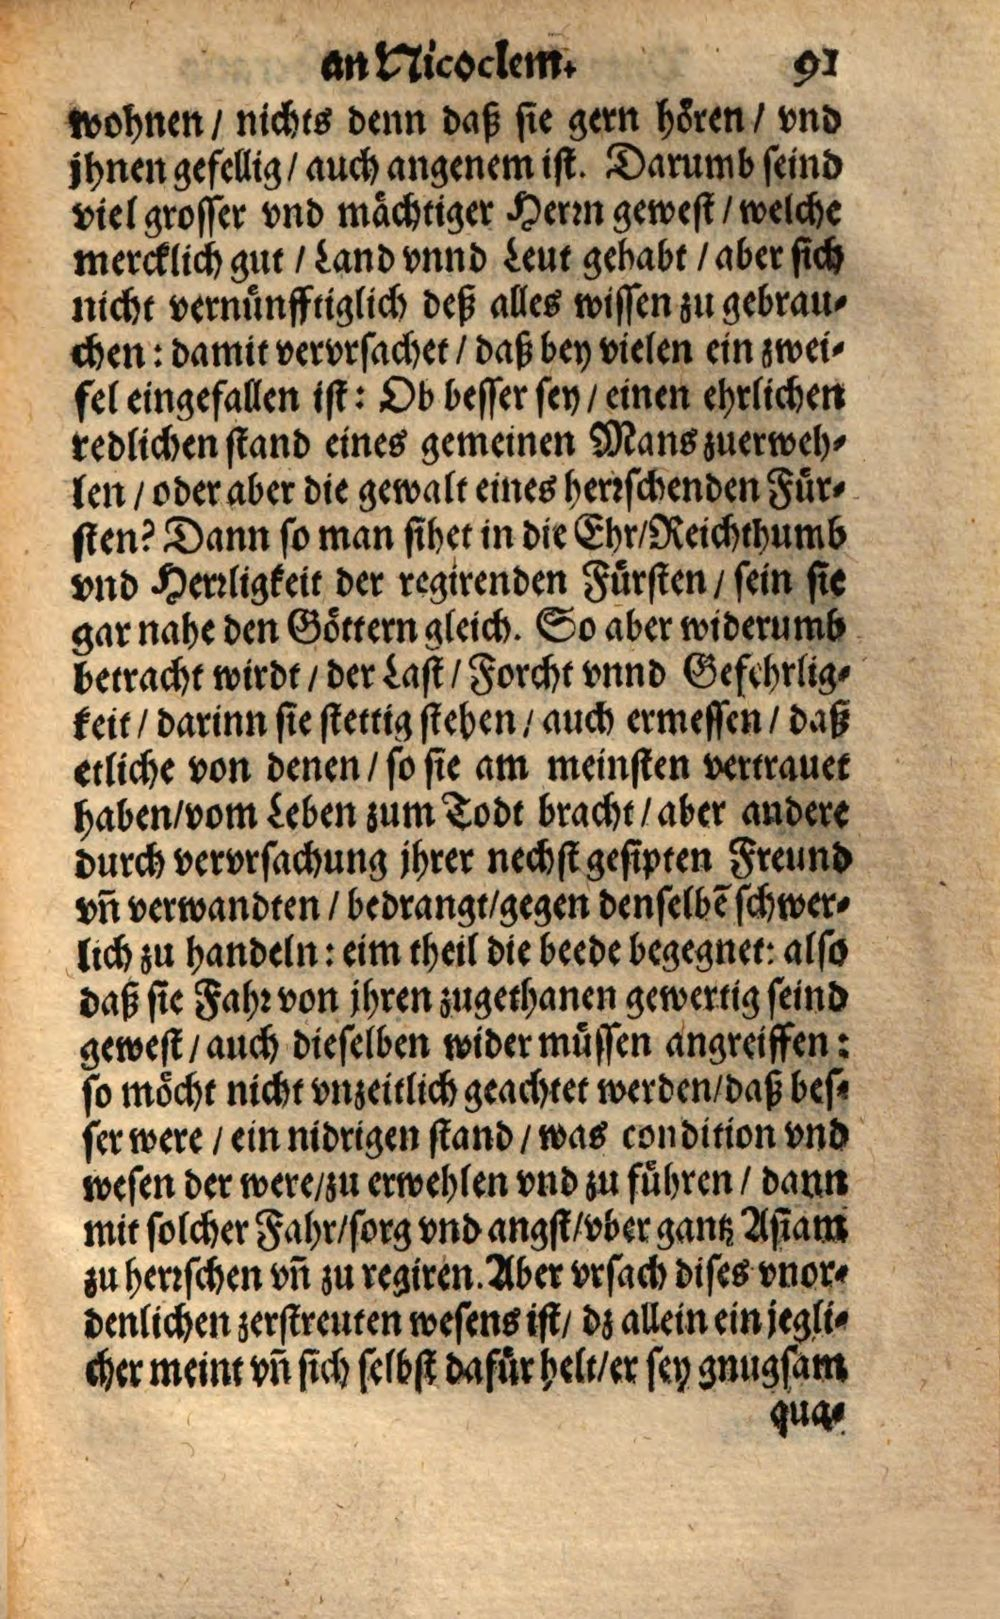 an Nicoclem. 91
wohnen / nichts denn daß sie gern hören / vnd
jhnen gefellig / auch angenem ist. Darumb seind
viel grosser vnd mächtiger Herrn gewest / welche
mercklich gut / Land vnnd Leut gehabt / aber sich
nicht vernünfftiglich deß alles wissen zu gebrau-
chen: damit vervrsachet / daß bey vielen ein zwei-
fel eingefallen ist: Ob besser sey / einen ehrlichen
redlichen stand eines gemeinen Mans zuerweh-
len / oder aber die gewalt eines herrschenden Für-
sten? Dann so man sihet in die Ehr/Reichthumb
vnd Herrligkeit der regirenden Fürsten / sein sie
gar nahe den Göttern gleich. So aber widerumb
betracht wirdt / der Last / Forcht vnnd Gefehrlig-
keit / darinn sie stettig stehen / auch ermessen / daß
etliche von denen / so sie am meinsten vertrauet
haben/vom Leben zum Todt bracht / aber andere
durch vervrsachung jhrer nechst gesipten Freund
vñ verwandten / bedrangt/gegen denselbẽ schwer-
lich zu handeln: eim theil die beede begegnet: also
daß sie Fahr von jhren zugethanen gewertig seind
gewest / auch dieselben wider müssen angreiffen:
so möcht nicht vnzeitlich geachtet werden/daß bes-
ser were / ein nidrigen stand / was condition vnd
wesen der were/zu erwehlen vnd zu führen / dann
mit solcher Fahr/sorg vnd angst/vber gantz Asiam
zu herrschen vñ zu regiren. Aber vrsach dises vnor-
denlichen zerstreuten wesens ist/ dz allein ein jegli-
cher meint vñ sich selbst dafür helt/er sey gnugsam
qua-